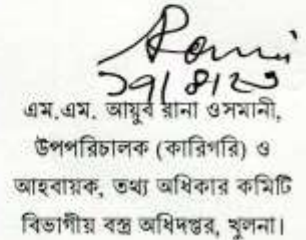 ২৭/৪/২৩
এম.এম. আয়ুব রানা ওসমানী,
উপপরিচালক (কারিগরি) ও
আহবায়ক, তথ্য অধিকার কমিটি
বিভাগীয় বস্ত্র অধিদপ্তর, খুলনা।